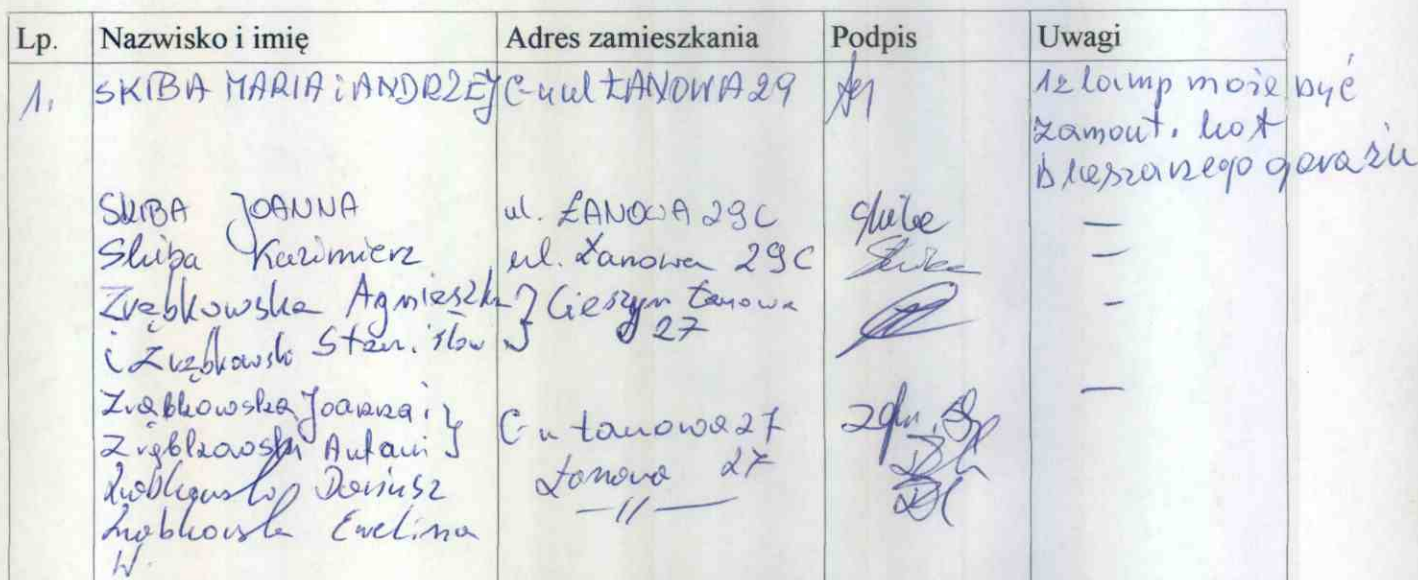 Lp. Nazwisko i imię Adres zamieszkania Podpis Uwagi
1. SKIBA MARIA i ANDRZEJ C-n ul ŁANOWA 29 1z lamp może być
zamont. kot
blaszanego garażu
SKIBA JOANNA ul. ŁANOWA 29C Skiba —
Skiba Kazimierz ul. Łanowa 29C Skiba —
Zrębkowska Agnieszka } Cieszyn Łanowa -
i Zrębkowski Stanisław 27
Zrębkowska Joanna i } —
Zrębkowski Antoni C-n Łanowa 27
Dariusz Łanowa 27
Ewelina —//—